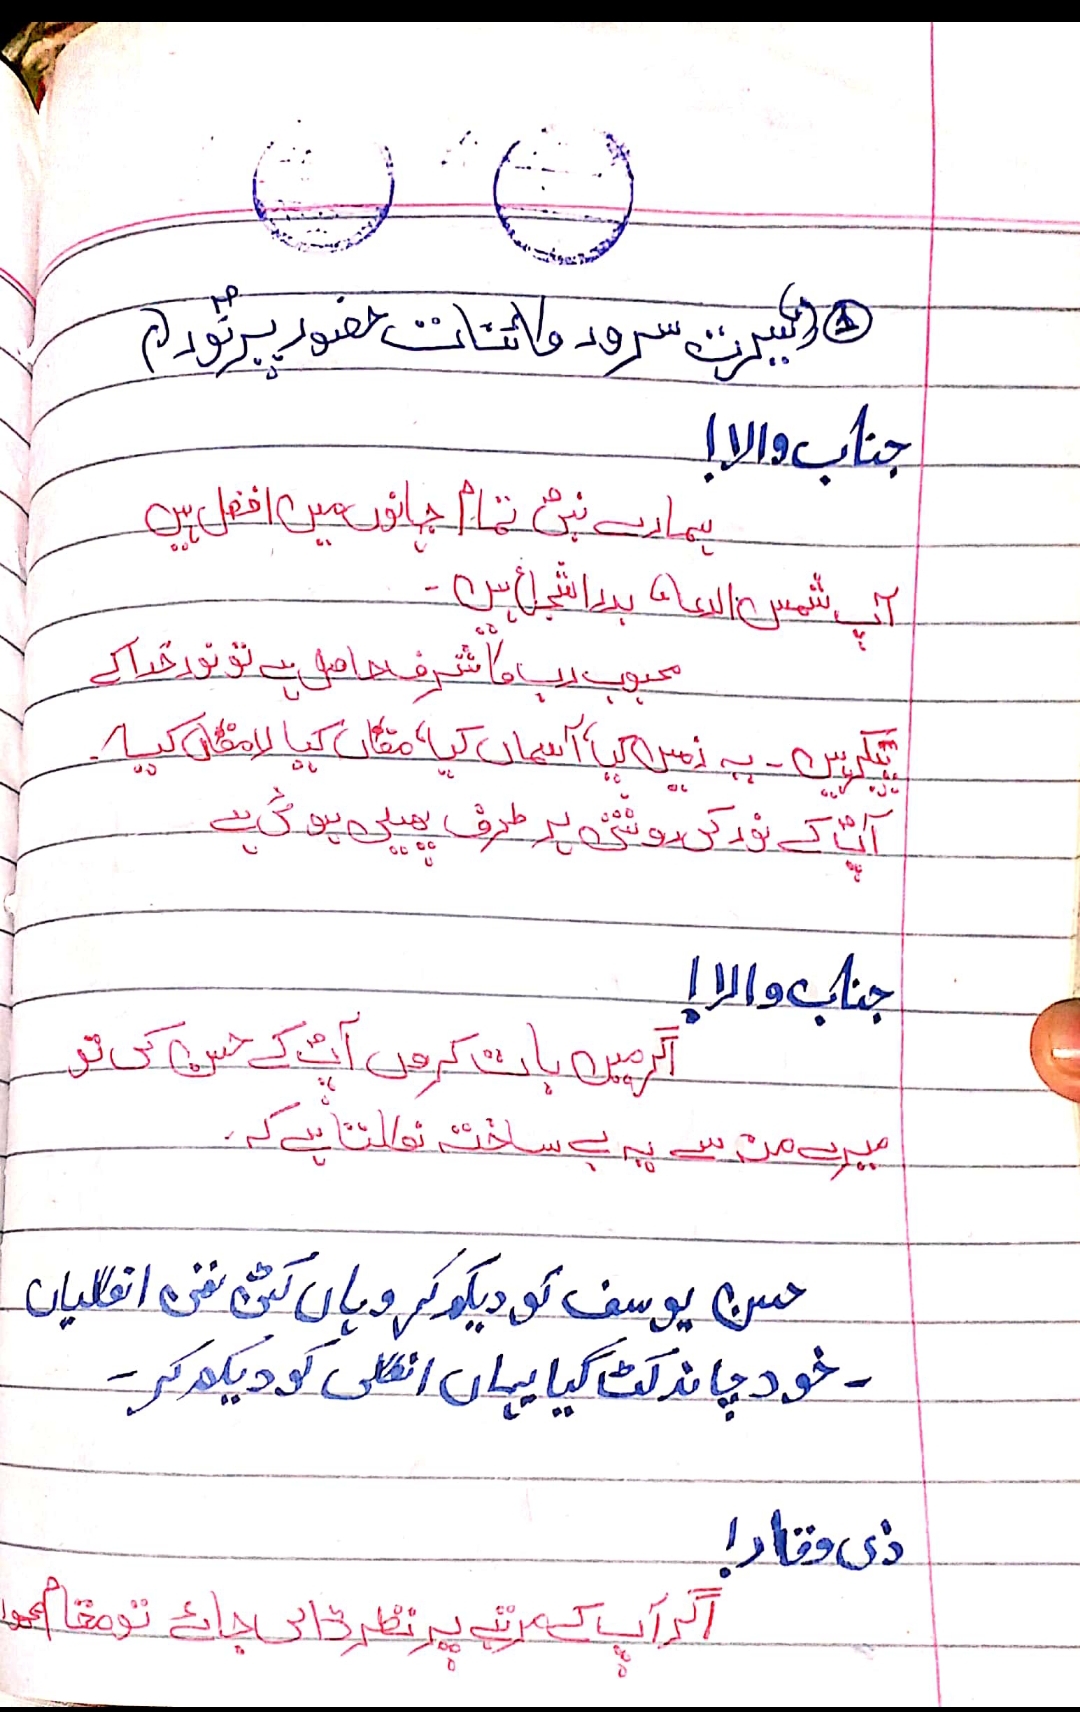 ① سیرت سرور کائنات حضور پر نورؐ
جناب والا!
ہمارے نبیؐ تمام جہانوں میں افضل ہیں
آپ شمس الدعا، بدر الشجاع ہیں۔
محبوب رب کا شرف حاصل ہے تو نور خدا کے
پیکر ہیں۔ یہ زمیں کیا، آسماں کیا، مقاں کیا لا مقاں کیا۔
آپؐ کے نور کی روشنی ہر طرف پھیلی ہوئی ہے
جناب والا!
اگر میں بات کروں آپؐ کے حسن کی تو
میرے من سے یہ بے ساختہ نکلتا ہے کہ۔
حسن یوسف کو دیکھ کر وہاں کٹی تھی انگلیاں
۔ خود چاند کٹ گیا یہاں انگلی کو دیکھ کر۔
ذی وقار!
اگر آپ کے مرتبے پر نظر ڈالی جائے تو مقام محمود